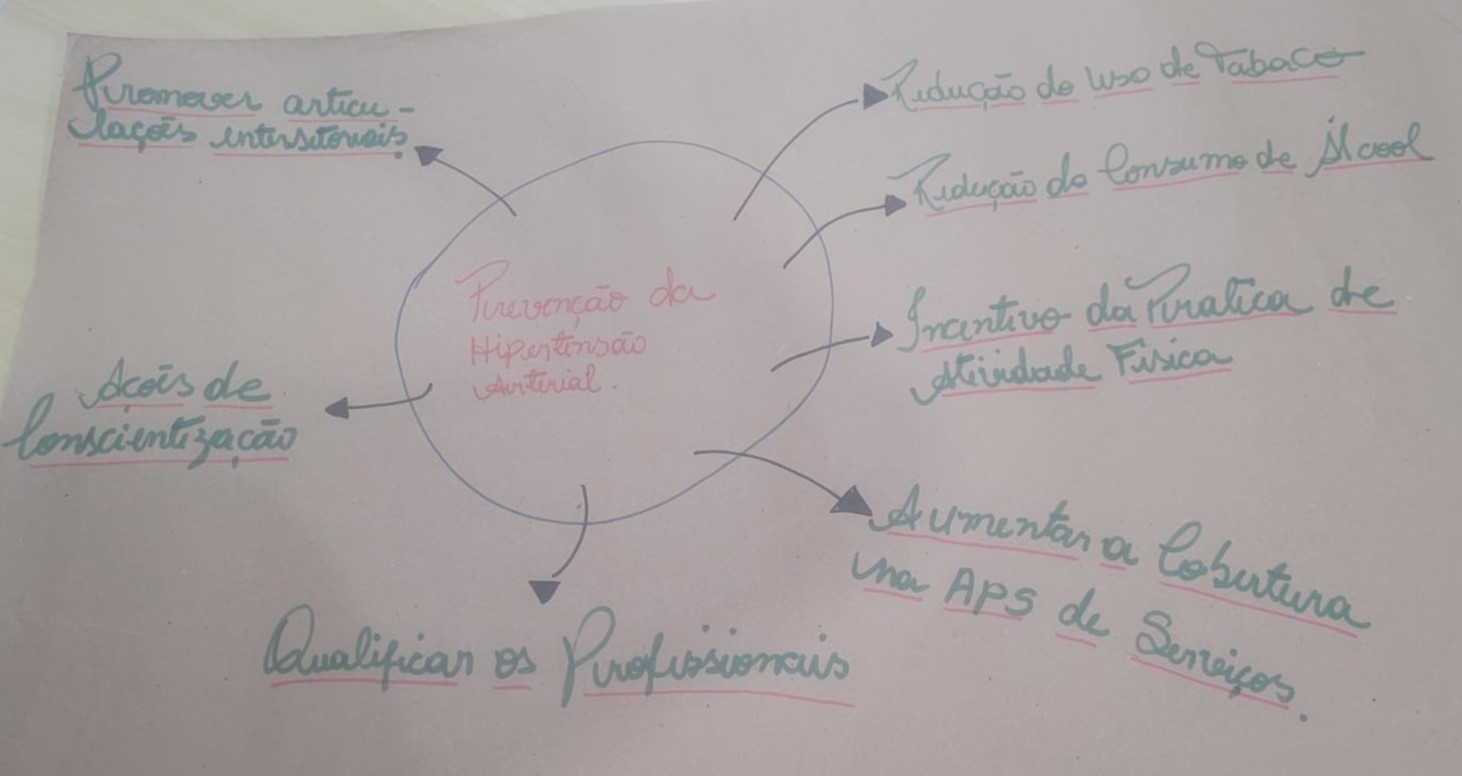 Promover articu-
lações intersetoriais.
Redução do uso de Tabaco
Redução do Consumo de Álcool
Prevenção da
Hipertensão
Arterial.
Incentivo da Pratica de
Atividade Física
Ações de
Conscientização
Aumentar a Cobertura
na APS de Serviços.
Qualificar os Profissionais